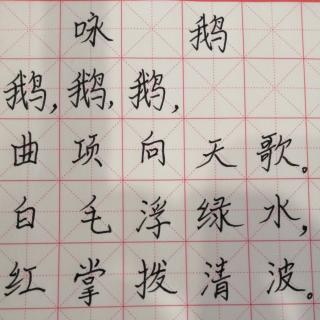 咏 鹅
鹅,鹅,鹅,
曲项向天歌。
白毛浮绿水,
红掌拨清波。